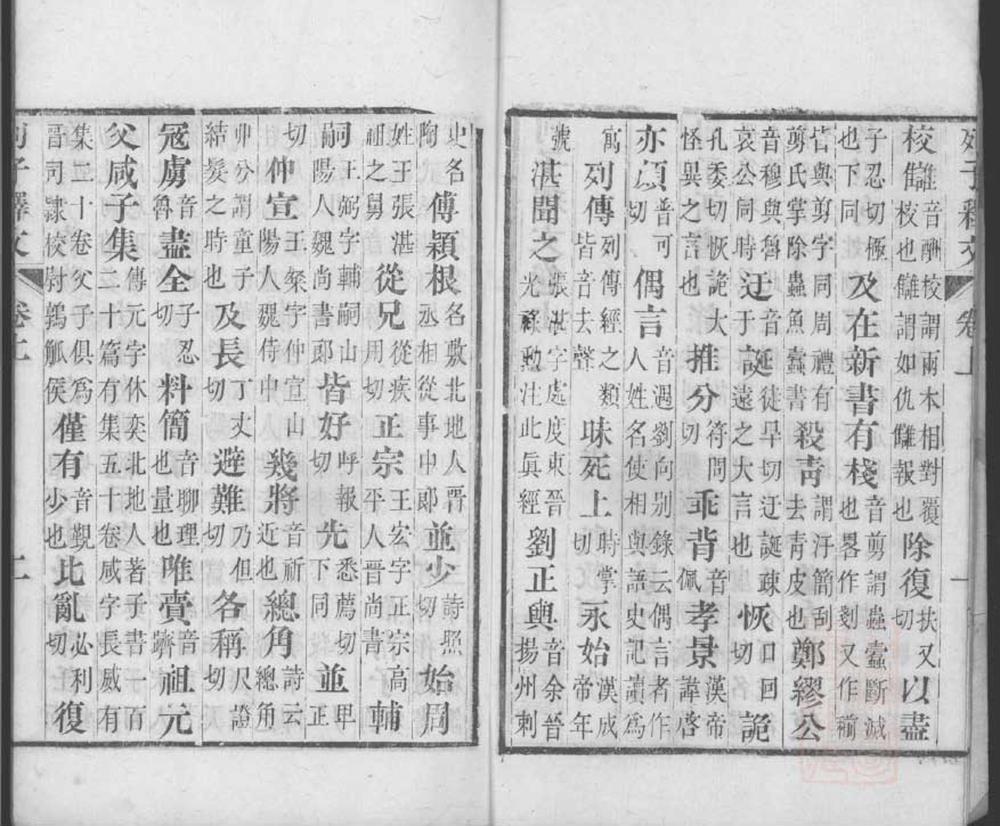 列子釋文 卷上 一
校讎音酬校謂兩木相對覆校也讎謂如仇讎報也除復扶又切以盡
子忍切極也下同及在新書有棧音剪謂蟲蠧斷滅也畧作剗又作
與剪字同周禮有剪氏掌除蟲魚蠧書殺青謂汙簡刮去青皮也鄭繆公
音穆與魯哀公同時迂音于誕徒旱切迂誕疎遠之大言也恢口回切詭
孔委切恢詭大怪異之言也推分符問切乖背音佩孝景漢帝諱啓
亦頗普可切偶言音遇劉向别錄云偶言者作人姓名使相與語史記讀爲
寓列傳列傳經之類皆音去聲昧死上時掌切永始漢成帝年
號湛聞之張湛字處度東晉光祿勳注此眞經劉正輿音余晉揚州刺
史名陶傅穎根名敷北地人晋丞相從事中郎並少詩照切始周
姓王張湛祖之舅從兄從疾用切正宗王宏字正宗高平人晉尚書輔
嗣王弼字輔嗣山陽人魏尚書郎皆好呼報切先悉薦切下同並甲正
切仲宣王粲字仲宣山陽人魏侍中幾將音祈近也總角詩云總角
丱兮謂童子結髪之時也及長丁丈切避難乃但切各稱尺證切
寇虜音魯盡全子忍切料簡音聊理也量也唯賷音躋祖元
父咸子集傅元字休奕北地人著子書一百二十篇有集五十卷咸字長虞有
集二十卷父子俱爲晉司隸校尉鶉觚侯僅有音覲少也比亂必利切復
列子釋文 卷上 二